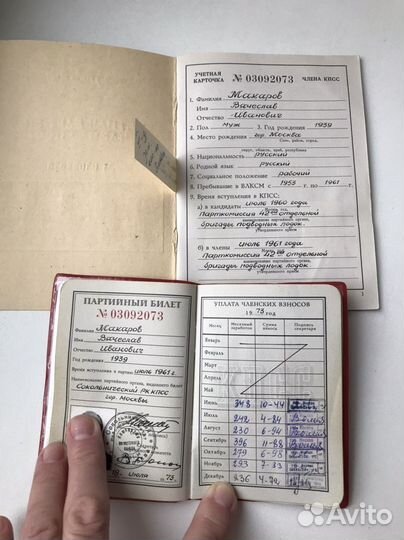 УЧЕТНАЯ
КАРТОЧКА № 03092073 ЧЛЕНА КПСС
1. Фамилия Макаров
Имя Вячеслав
Отчество Иванович
2. Пол муж 3. Год рождения 1939
4. Место рождения гор. Москва
Село, район, город,
округ, область, край, республика
5. Национальность русский
6. Родной язык русский
7. Социальное положение рабочий
8. Пребывание в ВЛКСМ с 1953 г. по 1961 г.
9. Время вступления в КПСС:
а) в кандидаты июль 1960 года
Парткомиссия 42 отдельной
наименование партийного органа,
бригады подводных лодок.
утвердившего прием
б) в члены июль 1961 года
Парткомиссия 42 отдельной
наименование партийного органа,
бригады подводных лодок.
утвердившего прием
ПАРТИЙНЫЙ БИЛЕТ
№ 03092073
Фамилия Макаров
Имя Вячеслав
Отчество Иванович
Год рождения 1939
Время вступления в партию июль 1961 г.
Наименование партийного органа, выдавшего билет
Сокольнический РК КПСС
гор. Москвы
июля 73
УПЛАТА ЧЛЕНСКИХ ВЗНОСОВ
19 73 год
Месяц Месячный заработок Сумма взноса Подпись секретаря
Январь
Февраль
Март
Апрель
Май
Июнь 348 10-44
Июль 242 4-84
Август 230 6-94
Сентябрь 396 11-88
Октябрь 279 6-98
Ноябрь 293 7-33
Декабрь 236
Avito